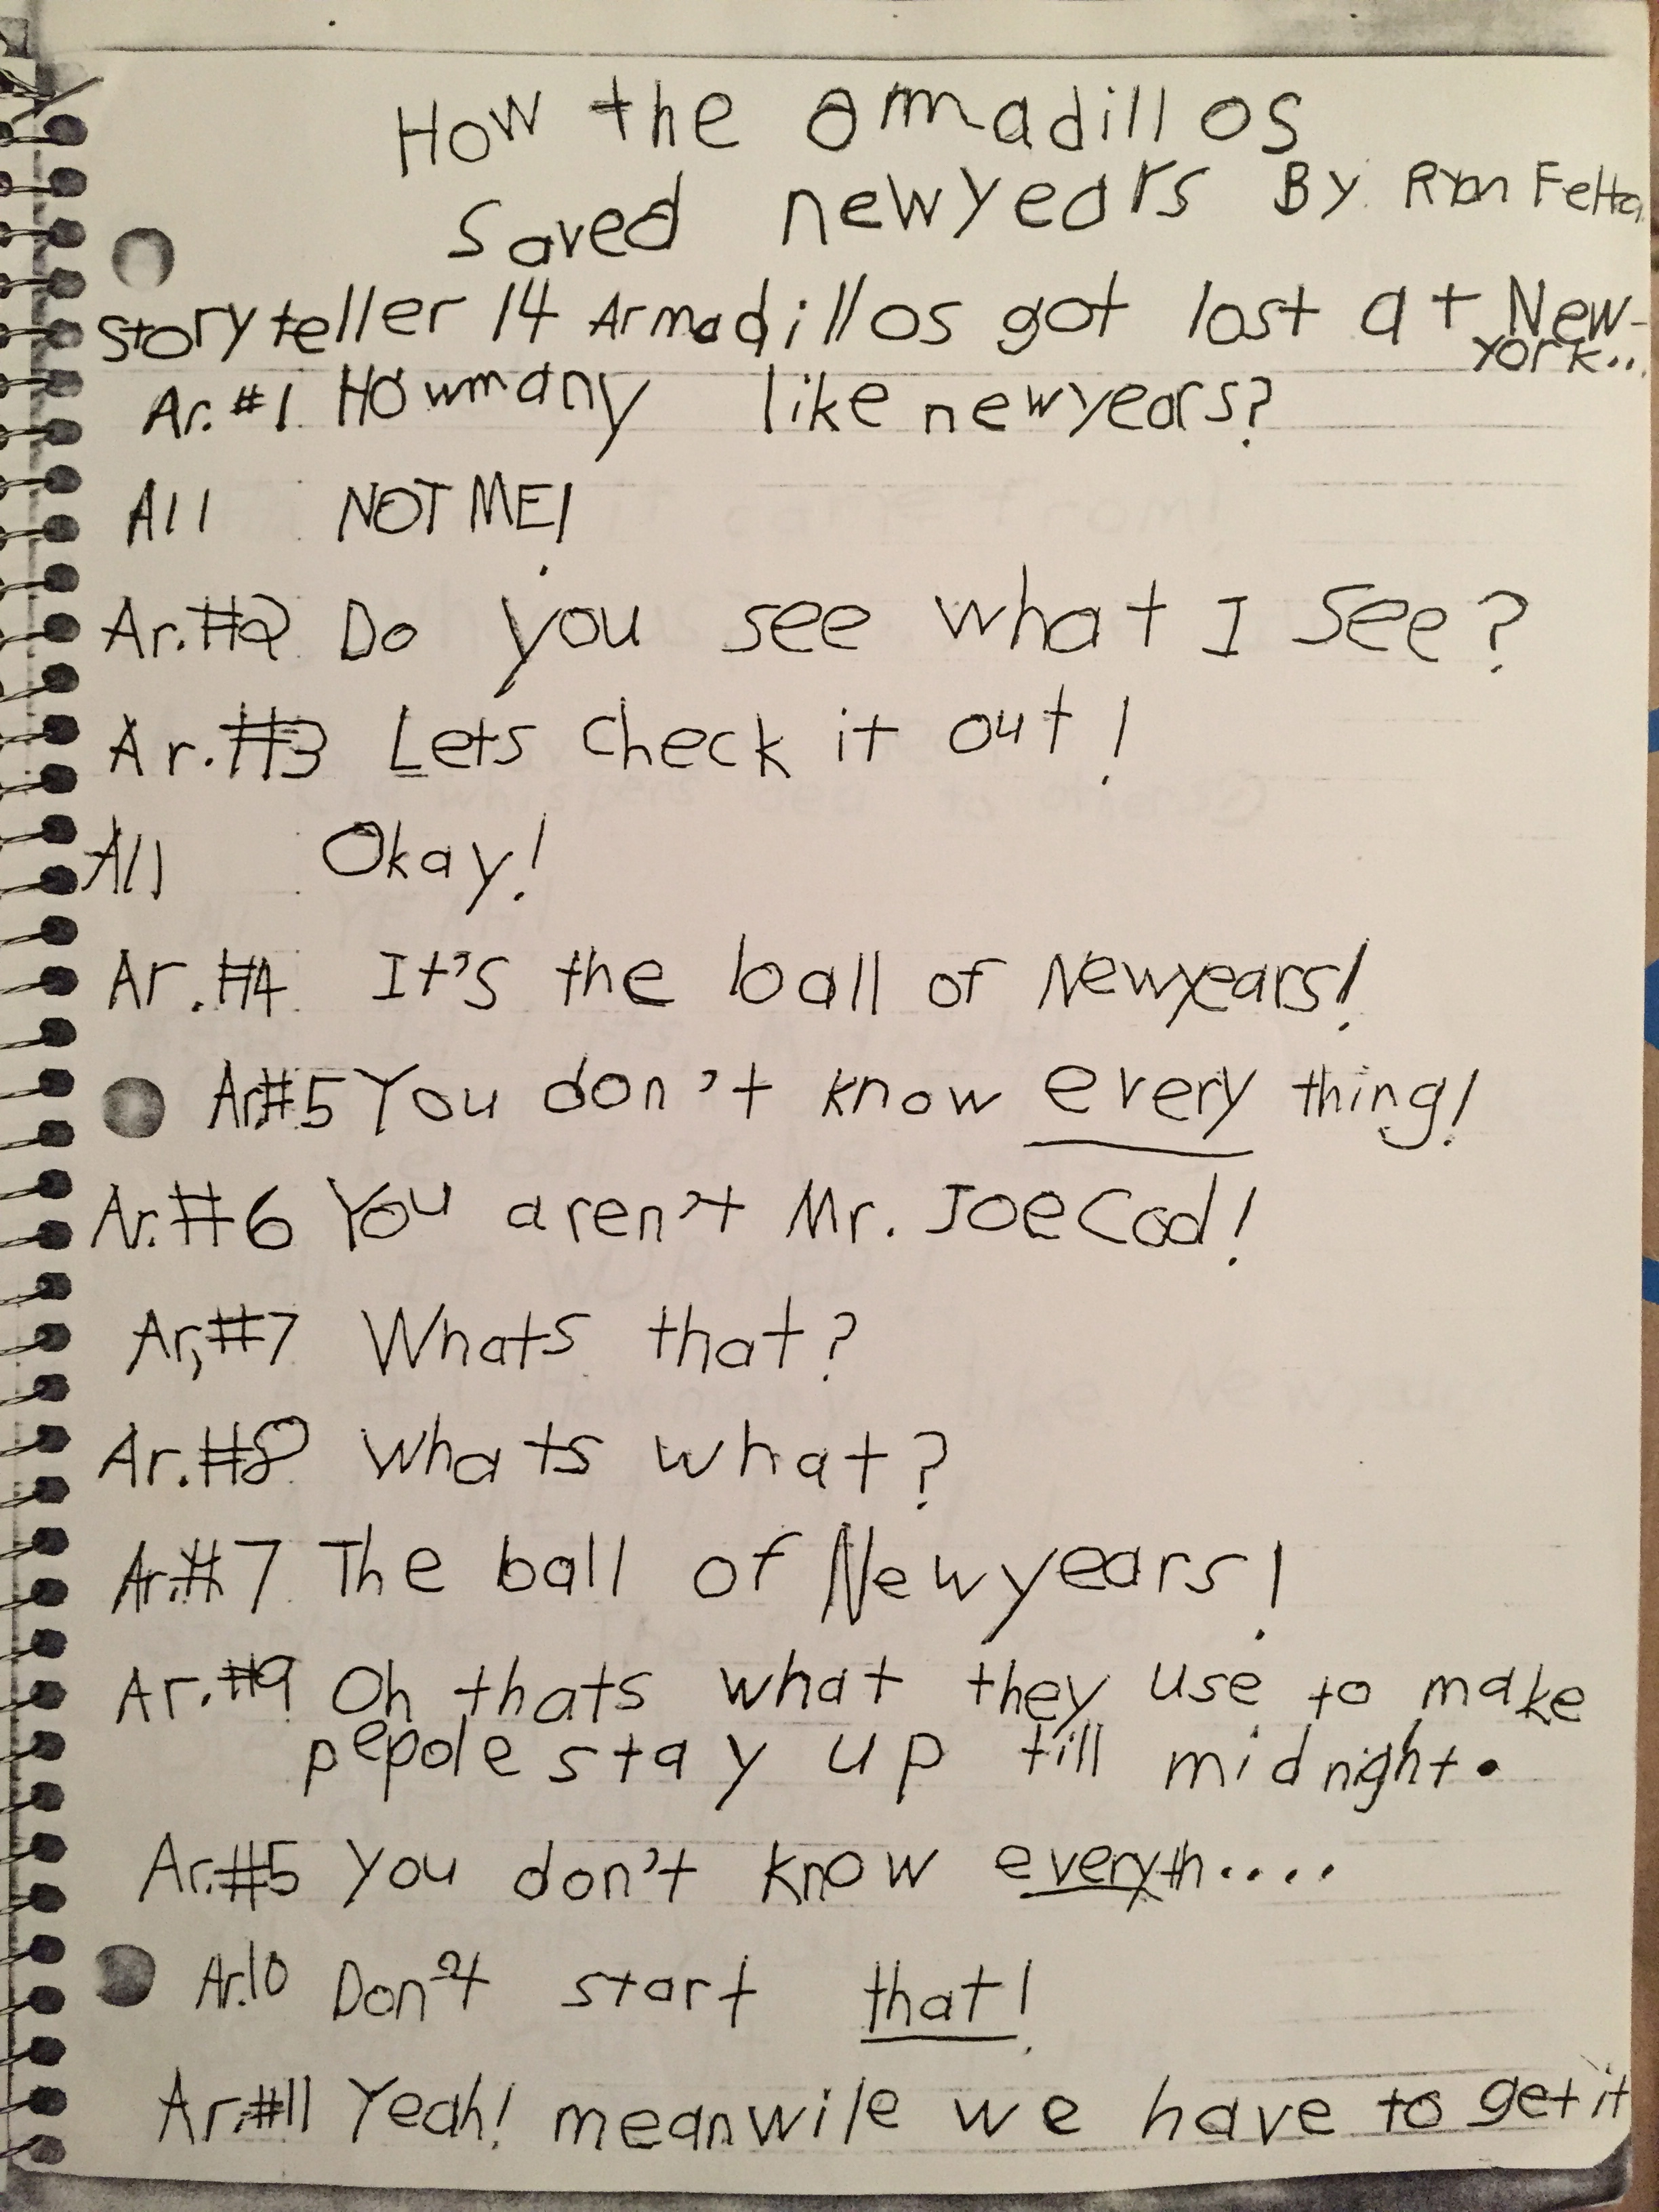 How the armadillos
saved newyears By Ryan
Storyteller 14 Armadillos got lost at New-
York...
Ar.#1 Howmany like newyears?
All NOT ME!
Ar.#2 Do you see what I see?
Ar.#3 Lets check it out!
All Okay!
Ar.#4 It's the ball of Newyears!
Ar.#5 You don't know every thing!
Ar.#6 You aren't Mr. Joe Cod!
Ar,#7 Whats that?
Ar.#8 Whats what?
Ar.#7 The ball of Newyears!
Ar.#9 Oh thats what they use to make
pepole stay up till midnight.
Ar.#5 You don't know everyth....
Ar.10 Don't start that!
Ar.#11 Yeah! meanwile we have to get it